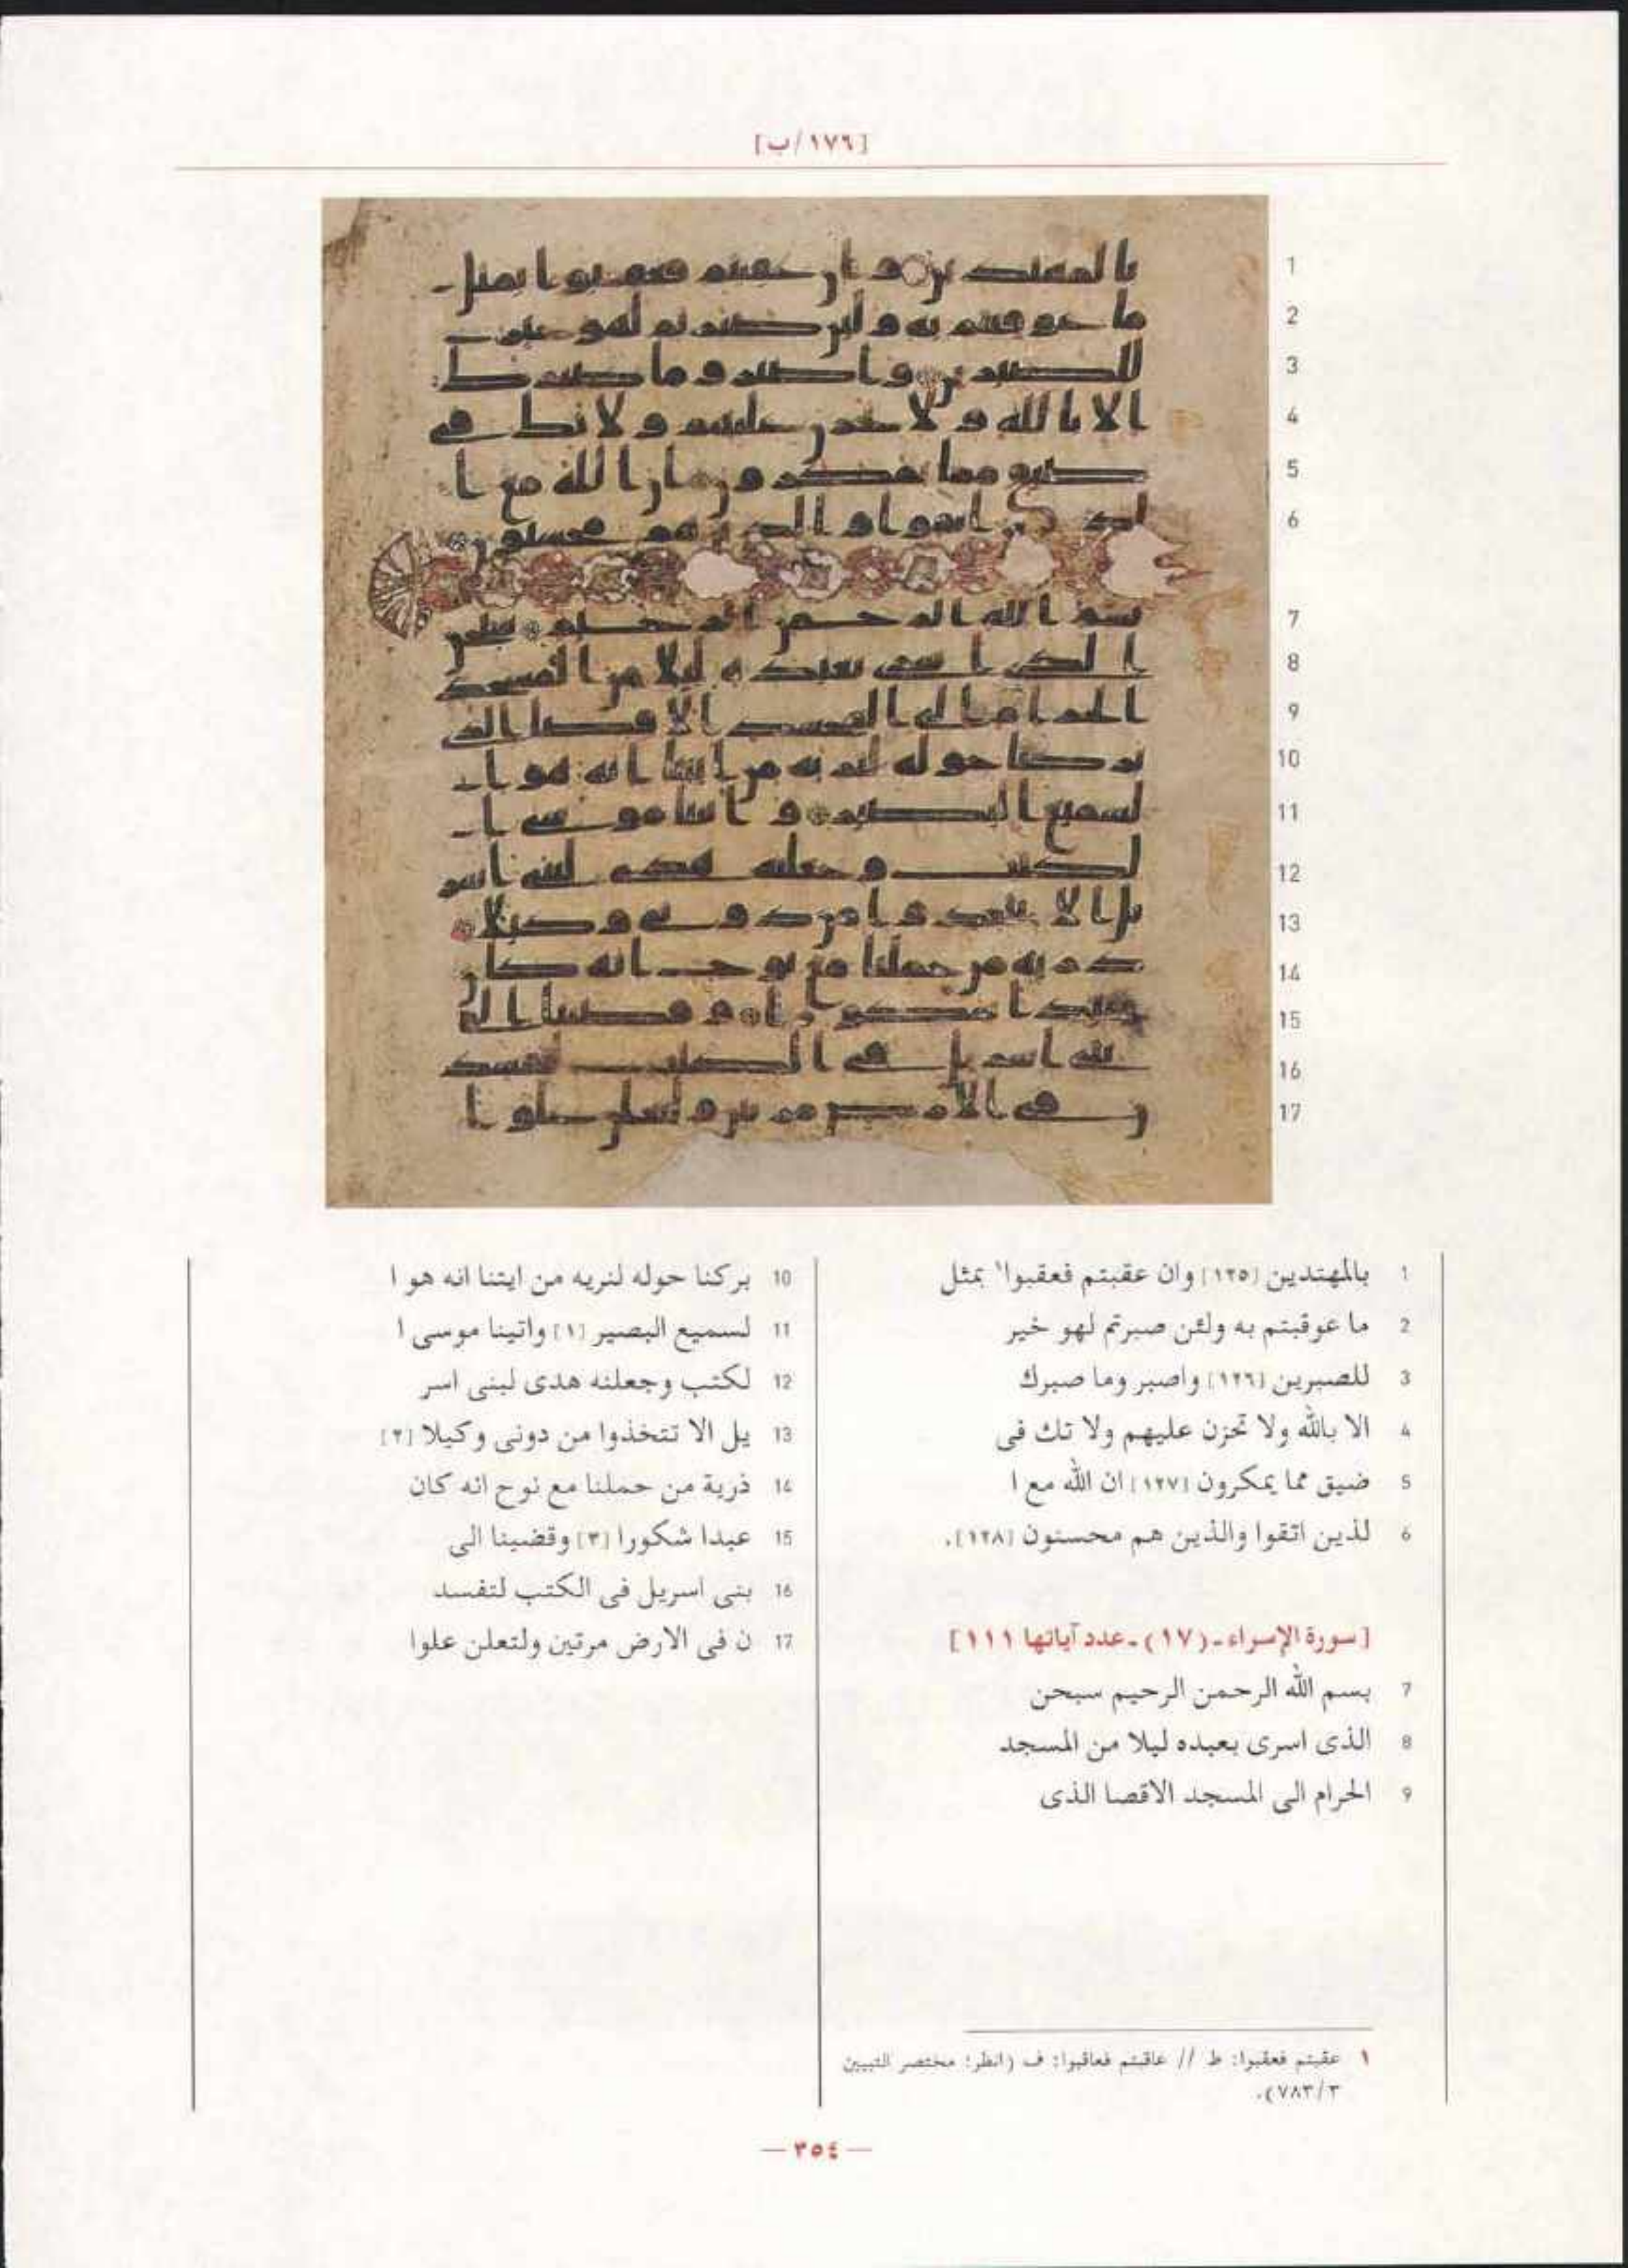 [١٧٦/ب]
1 بالمهتدين [١٢٥] وان عقبتم فعقبوا١ بمثل
2 ما عوقبتم به ولئن صبرتم لهو خير
3 للصبرين [١٢٦] واصبر وما صبرك
4 الا بالله ولا تحزن عليهم ولا تك فى
5 ضيق مما يمكرون [١٢٧] ان الله مع ا
6 لذين اتقوا والذين هم محسنون [١٢٨].
[سورة الإسراء ـ (١٧) ـ عدد آياتها ١١١]
7 بسم الله الرحمن الرحيم سبحن
8 الذى اسرى بعبده ليلا من المسجد
9 الحرام الى المسجد الاقصا الذى
10 بركنا حوله لنريه من ايتنا انه هو ا
11 لسميع البصير [١] واتينا موسى ا
12 لكتب وجعلنه هدى لبنى اسر
13 يل الا تتخذوا من دونى وكيلا [٢]
14 ذرية من حملنا مع نوح انه كان
15 عبدا شكورا [٣] وقضينا الى
16 بنى اسريل فى الكتب لتفسد
17 ن فى الارض مرتين ولتعلن علوا
١ عقبتم فعقبوا: ط // عاقبتم فعاقبوا: ف (انظر: مختصر التبيين
٧٨٣/٣).
— ٣٥٤ —